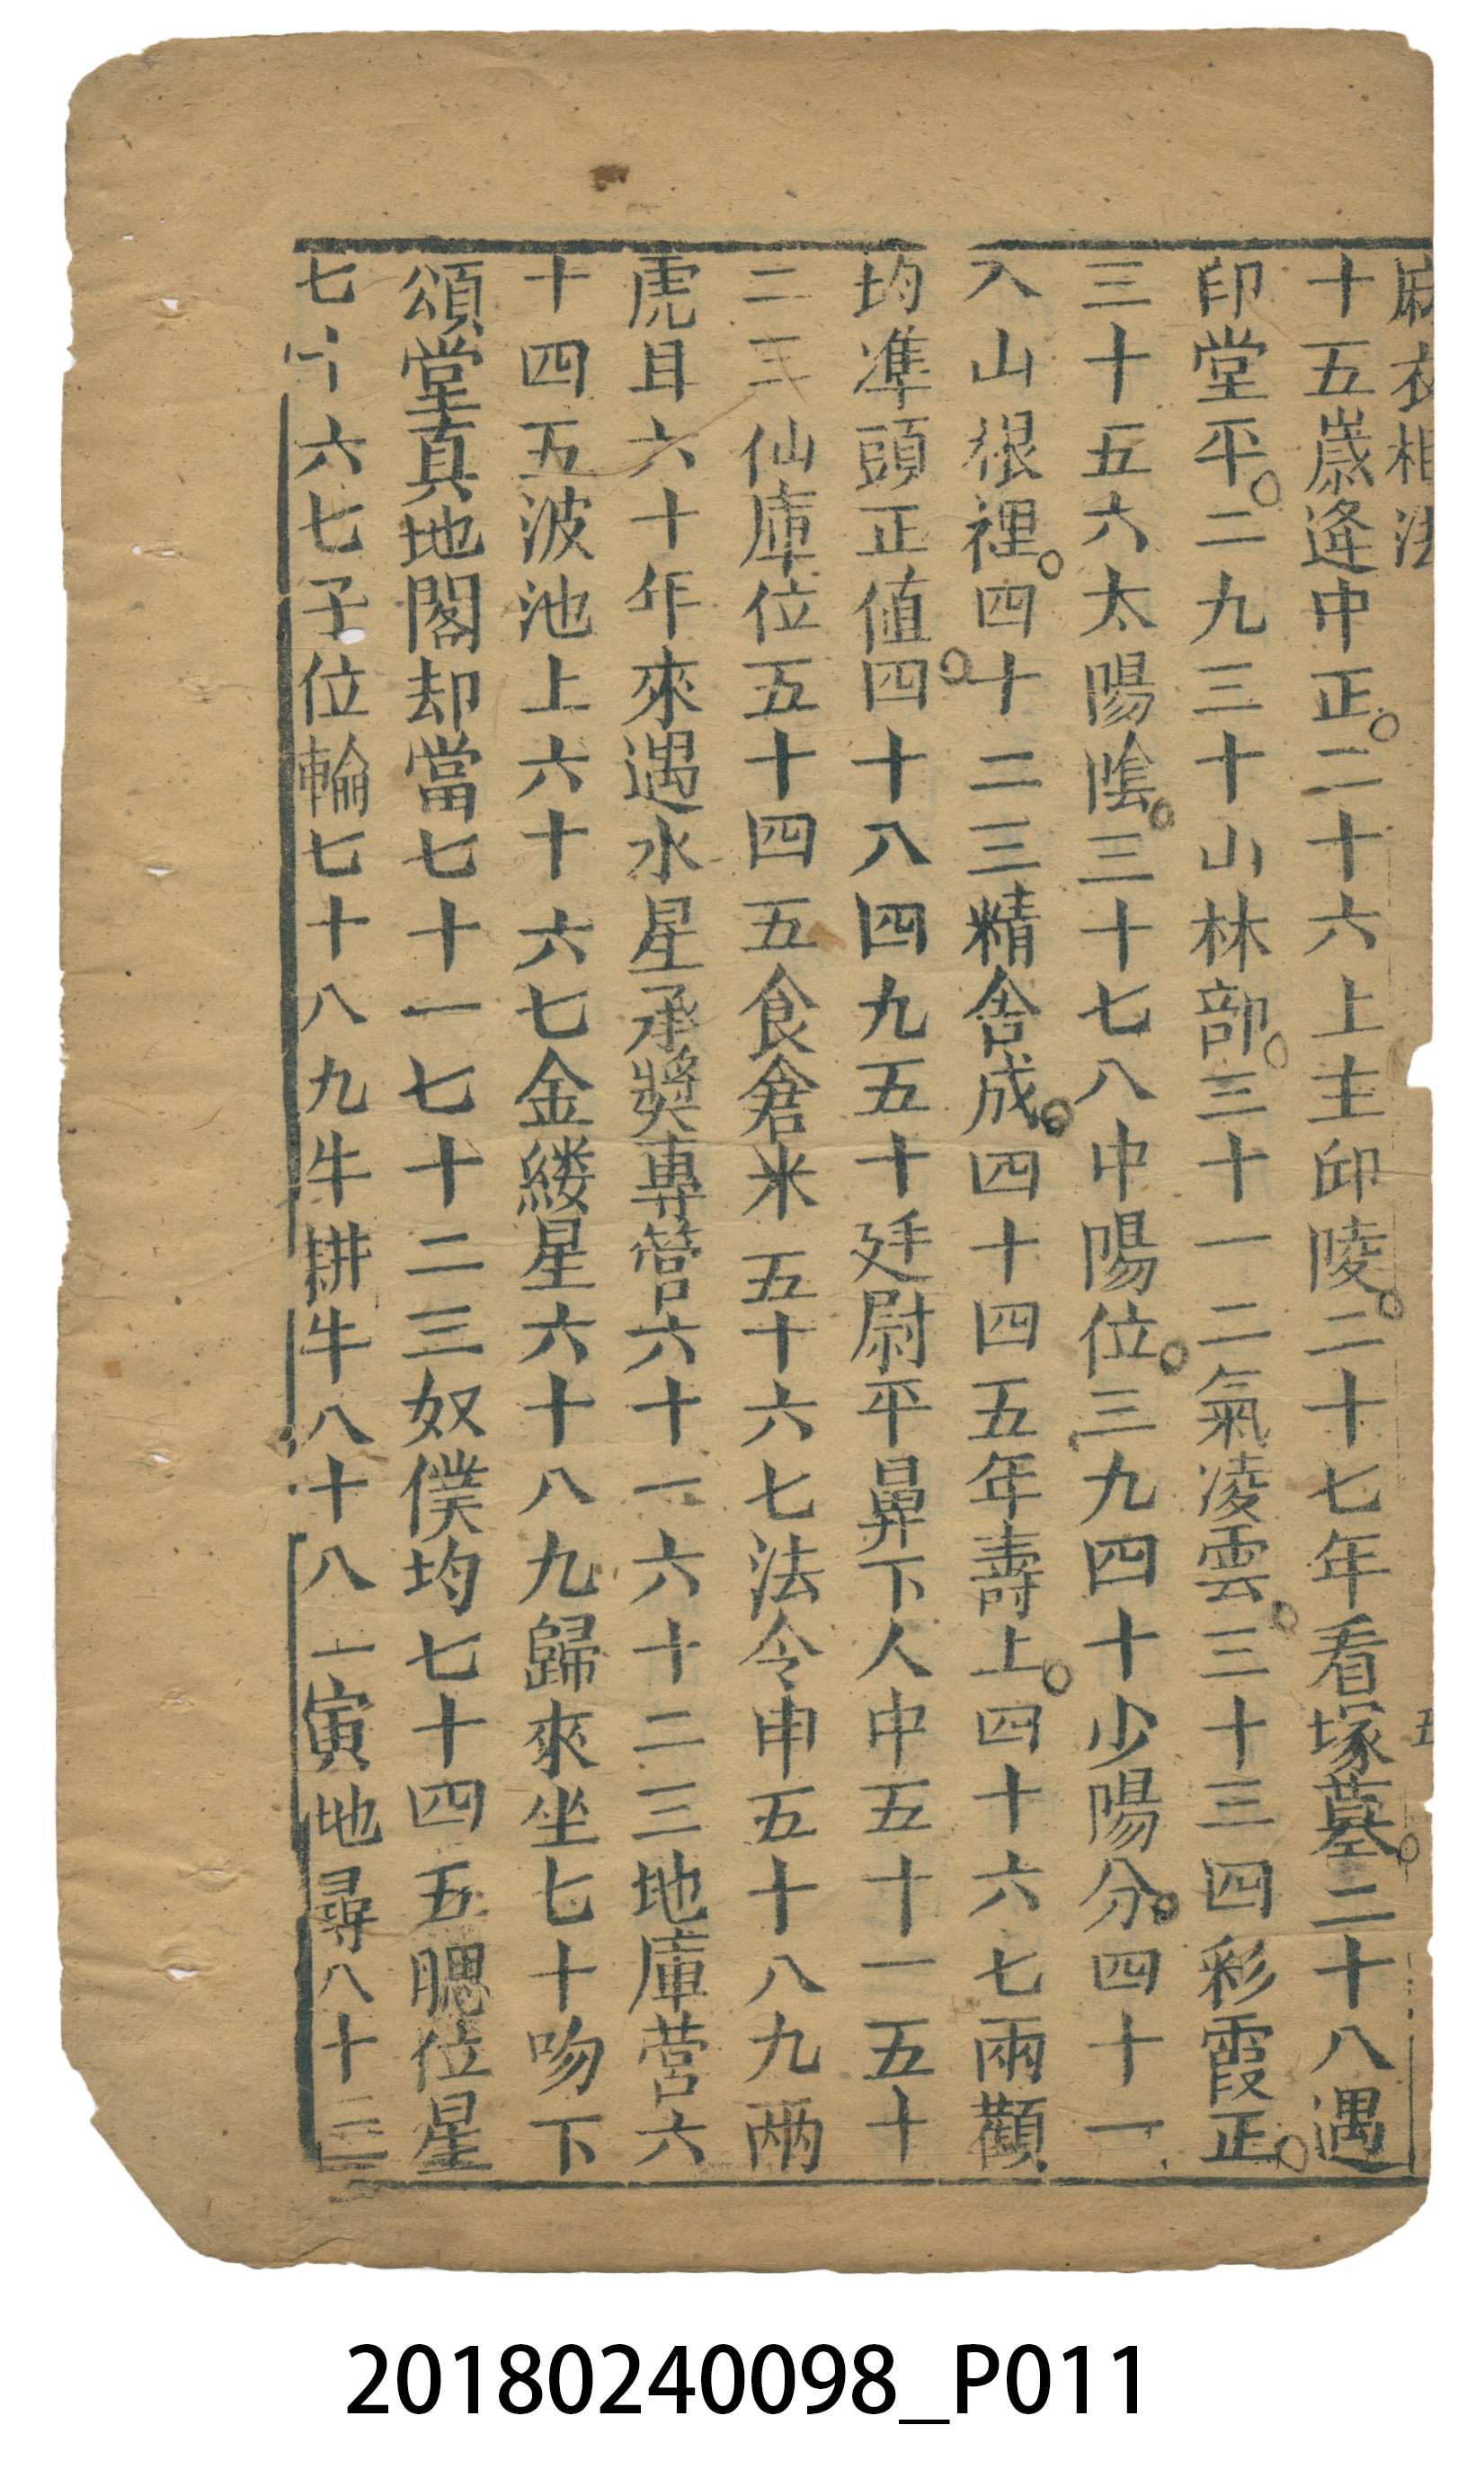 麻衣相法
五
十五歲逄中正。二十六上主卬陵。二十七年看塚墓。二十八遇
印堂平。二九三十山林部。三十一二氣凌雲。三十三四彩霞正。
三十五六太陽陰。三十七八中陽位。三九四十少陽分。四十一
八山根裡。四十二三精舍成。四十四五年壽上。四十六七兩顴
均準頭正值。四十八四九五十廷尉平鼻下人中五十一五十
二三仙庫位五十四五食倉米五十六七法令申五十八九兩
虎耳六十年來遇水星承漿專營六十一六十二三地庫营六
十四五波池上六十六七金縷星六十八九歸來坐七十吻下
頌堂真地閣却當七十一七十二三奴僕均七十四五腮位星
七十六七子位輪七十八九牛耕牛八十八一寅地尋八十二三
20180240098_P011